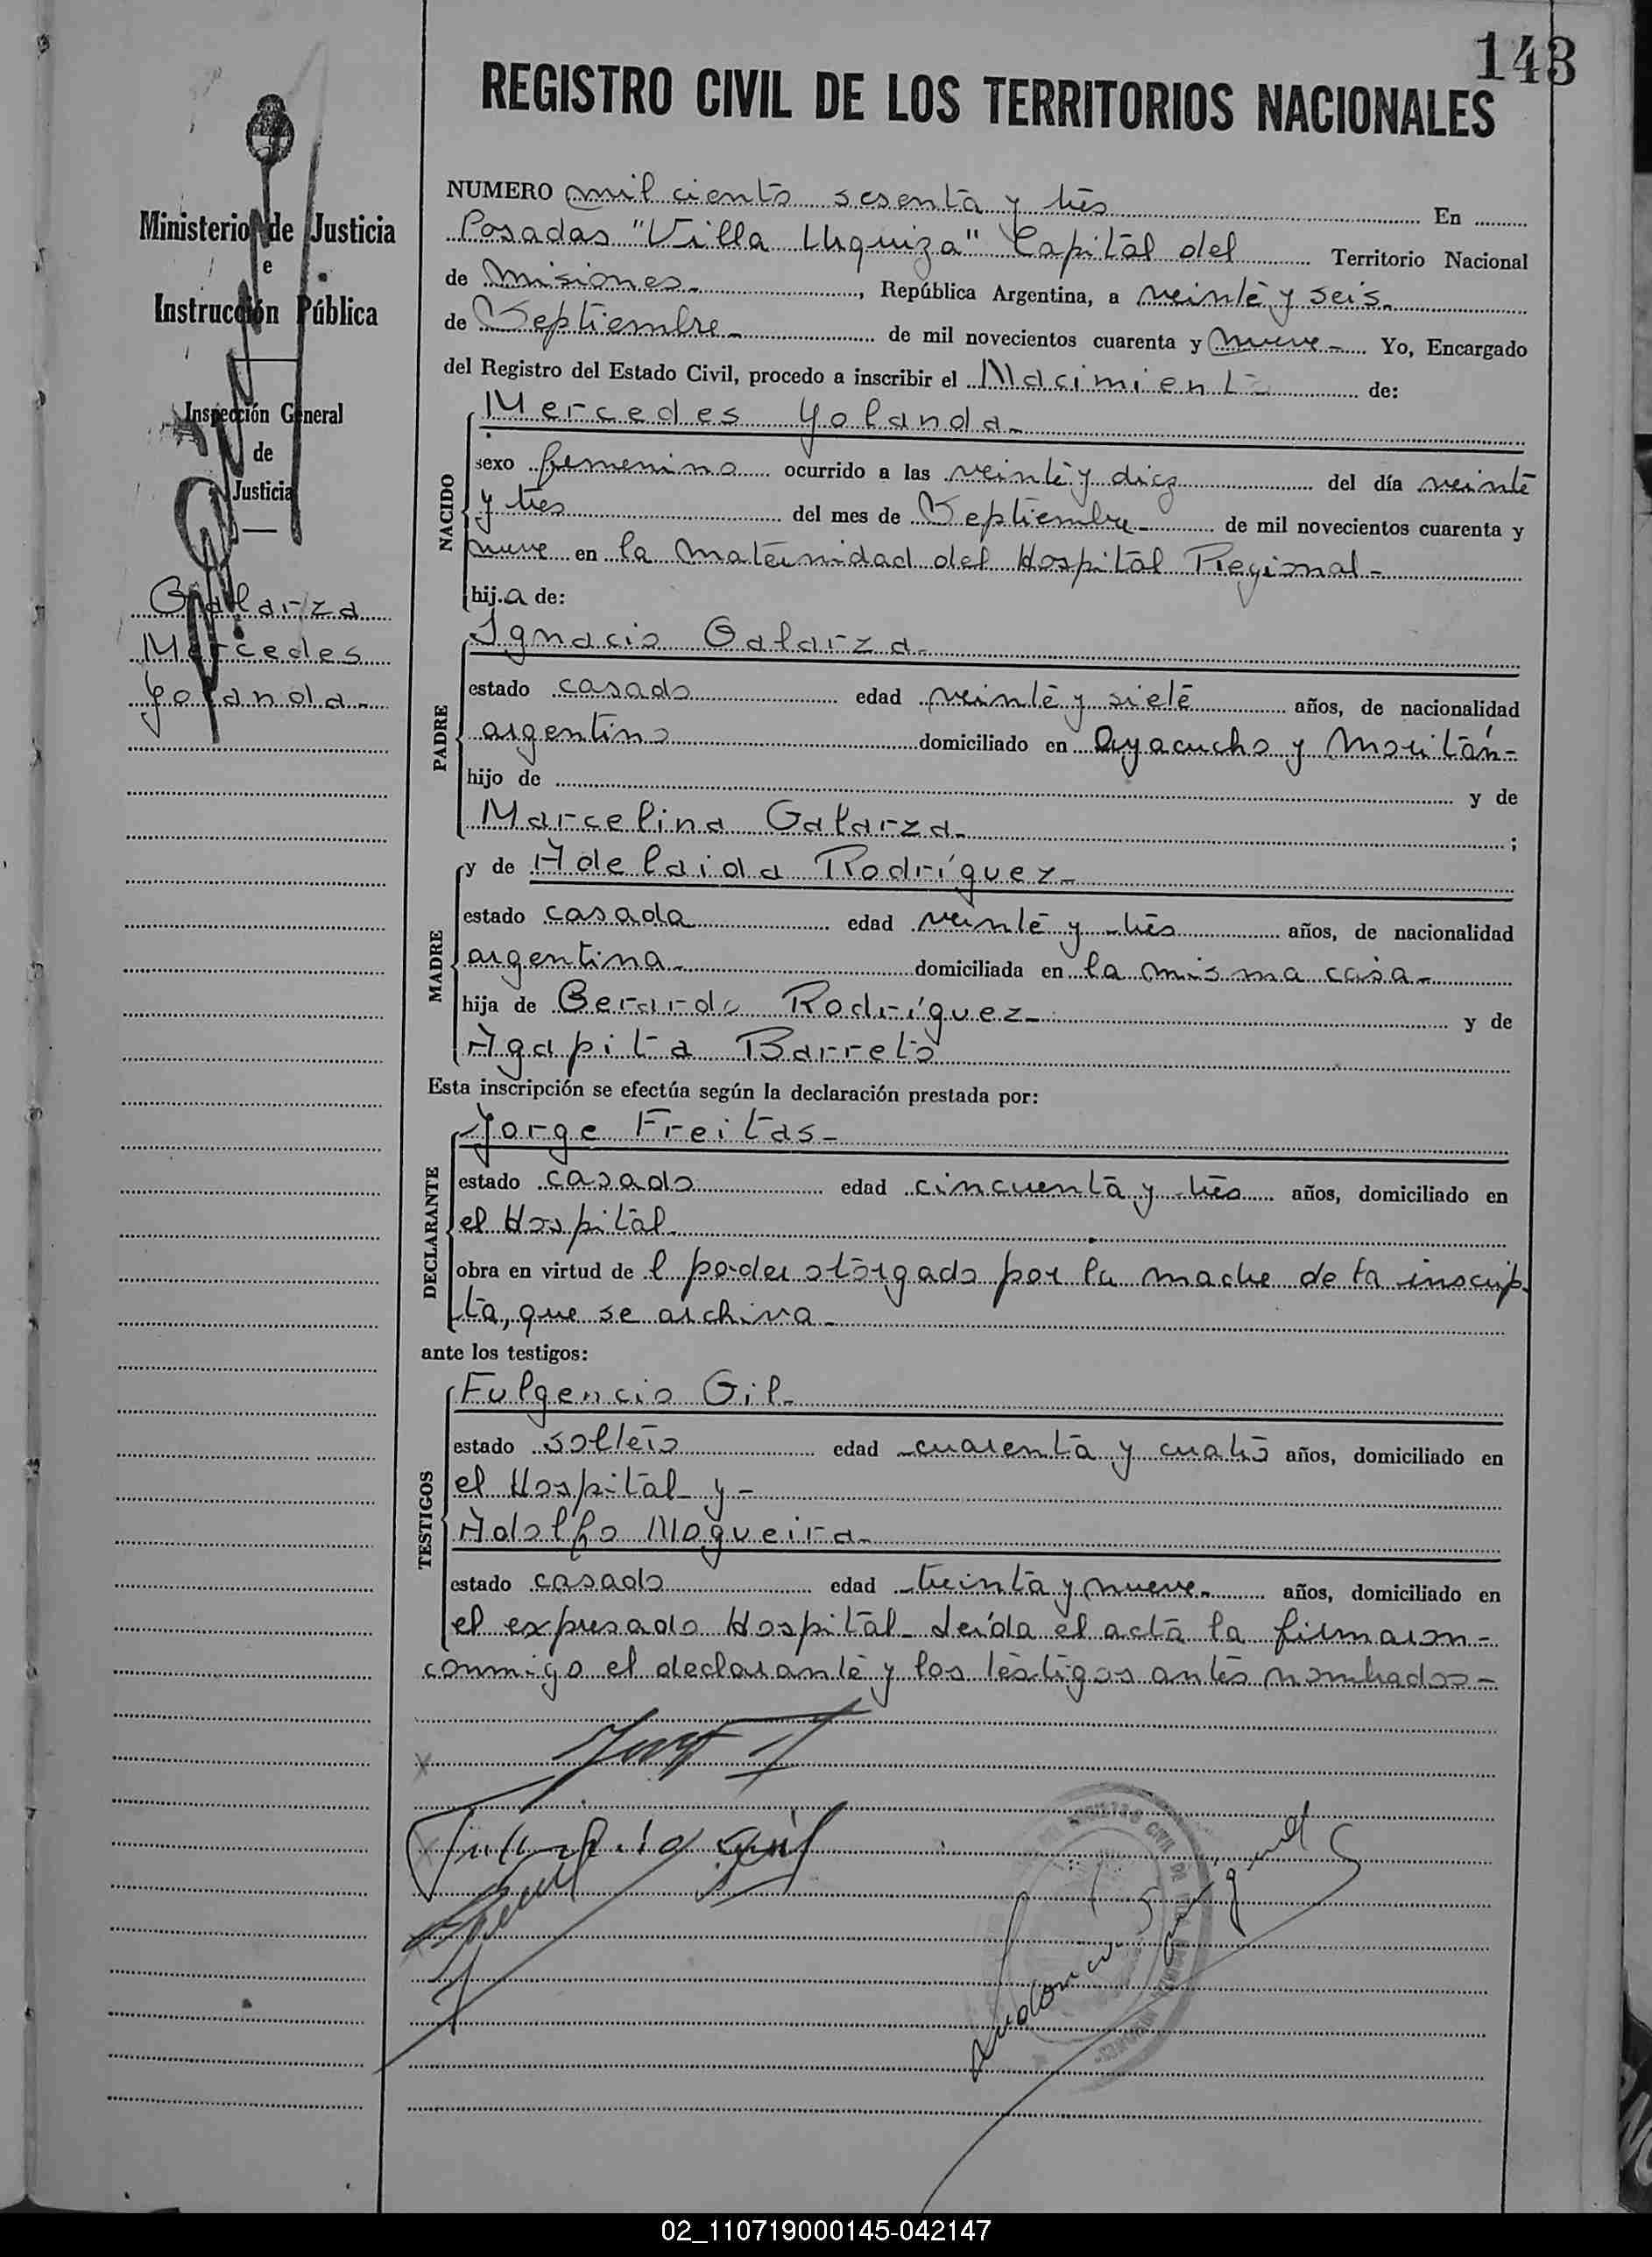 143
REGISTRO CIVIL DE LOS TERRITORIOS NACIONALES
Ministerio de Justicia
e
Instrucción Pública
Inspección General
de
Justicia
Galarza
Mercedes
Yolanda-
NUMERO mil ciento sesenta y tres En
Posadas "Villa Urquiza" Capital del Territorio Nacional
de Misiones-, República Argentina, a veinte y seis-
de Septiembre- de mil novecientos cuarenta y nueve- Yo, Encargado
del Registro del Estado Civil, procedo a inscribir el Nacimiento de:
NACIDO
Mercedes Yolanda-
sexo femenino ocurrido a las veinte y diez del día veinte
y tres del mes de Septiembre- de mil novecientos cuarenta y
nueve en la maternidad del Hospital Regional-
hija de:
PADRE
Ignacio Galarza-
estado casado edad veinte y siete años, de nacionalidad
argentino domiciliado en Ayacucho y
hijo de y de
Marcelina Galarza- ;
MADRE
y de Adelaida Rodríguez-
estado casada edad veinte y tres años, de nacionalidad
argentina- domiciliada en la misma casa-
hija de Gerardo Rodríguez- y de
Agapita Barreto
Esta inscripción se efectúa según la declaración prestada por:
DECLARANTE
Jorge Freitas-
estado casado edad cincuenta y tres años, domiciliado en
el Hospital-
obra en virtud del poder otorgado por la madre de la inscrip-
ta, que se archiva-
ante los testigos:
TESTIGOS
Fulgencio Gil-
estado soltero edad cuarenta y cuatro años, domiciliado en
el Hospital- y-
Adolfo Nogueira-
estado casado edad treinta y nueve- años, domiciliado en
el expresado Hospital- Leída el acta la firmaron-
conmigo el declarante y los testigos antes nombrados-
02_110719000145-042147